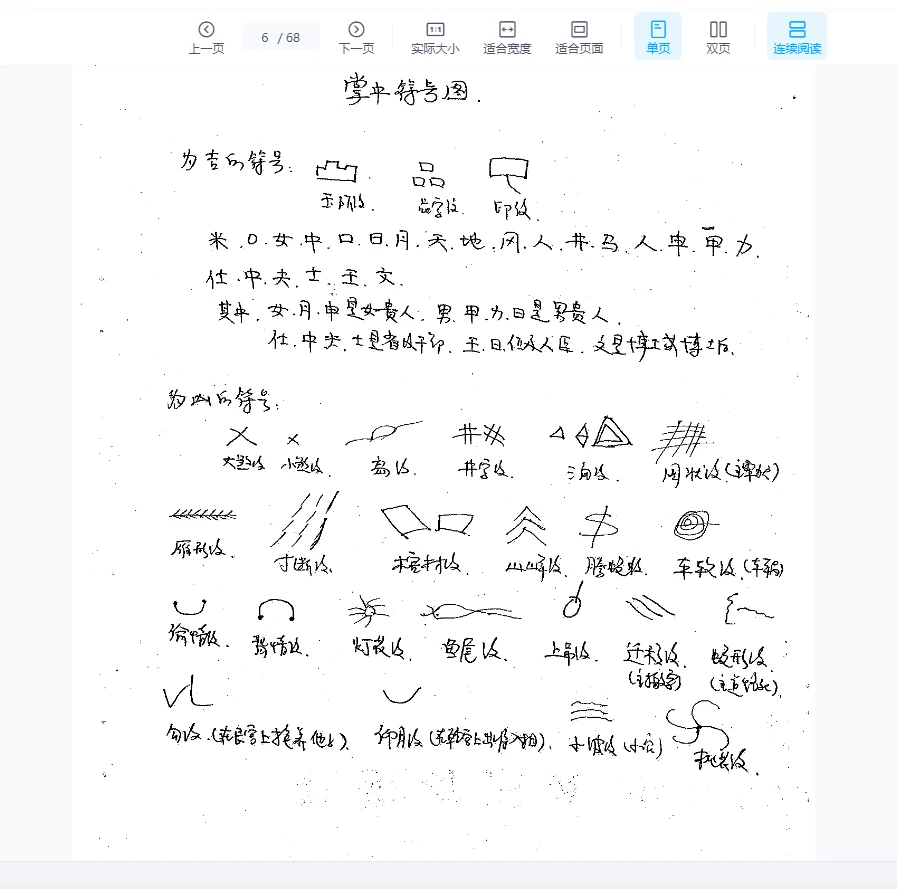 上一页 6 / 68 下一页 实际大小 适合宽度 适合页面 单页 双页 连续阅读
掌中符号图.
为吉的符号:
玉阶纹. 品字纹. 印纹.
米.口.女.中.口.日.月.天.地.冈.人.井.马.人.申.甲.力.
仕.中.夫.士.王.文.
其中.女.月.申是女贵人.男.甲.力.日是男贵人.
仕.中夫.士是省级干部.王.日位及人臣.文是博士或博士后.
为凶的符号:
大煞纹 小煞纹. 岛纹. 井字纹. 三角纹. 网状纹(主罪犬)
雁形纹. 寸断纹. 棺材纹. 山峰纹. 螣蛇纹. 车轮纹.(车祸)
偷情纹. 背情纹. 灯花纹. 鱼尾纹. 上吊纹. 迁移纹. 蛇形纹.
(主搬家)
勾纹.( 仰月纹( 水波纹(水灾) 桃花纹.